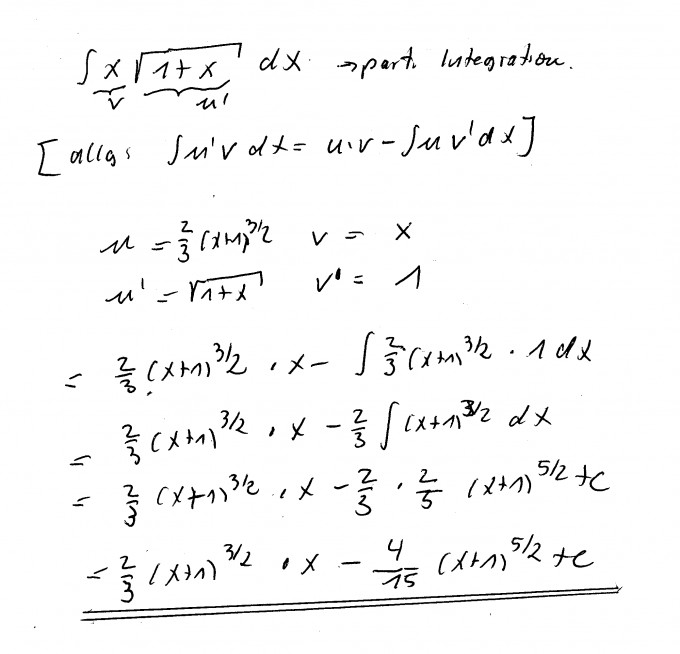 ∫ x √(1+x) dx → part. Integration.
v u'
[allg: ∫u'v dx = u·v - ∫u v' dx]
u = 2/3 (x+1)^3/2 v = x
u' = √(1+x) v' = 1
= 2/3 (x+1)^3/2 · x - ∫ 2/3 (x+1)^3/2 · 1 dx
= 2/3 (x+1)^3/2 · x - 2/3 ∫ (x+1)^3/2 dx
= 2/3 (x+1)^3/2 · x - 2/3 · 2/5 (x+1)^5/2 + C
= 2/3 (x+1)^3/2 · x - 4/15 (x+1)^5/2 + C